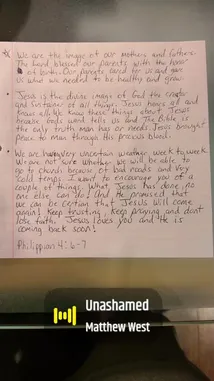 We are the image of our mothers and fathers.
The Lord blessed our parents with the honor
of birth. Our parents cared for us and gave
us what we needed to be healthy and grow.
Jesus is the divine image of God the creator
and sustainer of all things. Jesus hears all and
knows all. We know these things about Jesus
because God's word tells us and The Bible is
the only truth man has or needs. Jesus brought
peace to man through His precious blood.
We are having very uncertain weather week to week.
We are not sure whether we will be able to
go to church because of bad roads and very
cold temps. I want to encourage you of a
couple of things. What Jesus has done, no
one else can do! And He promised that
we can be certian that Jesus will come
again! Keep trusting, keep praying and dont
lose faith. Jesus loves you and He is
coming back soon!
Philippian 4:6-7
Unashamed
Matthew West